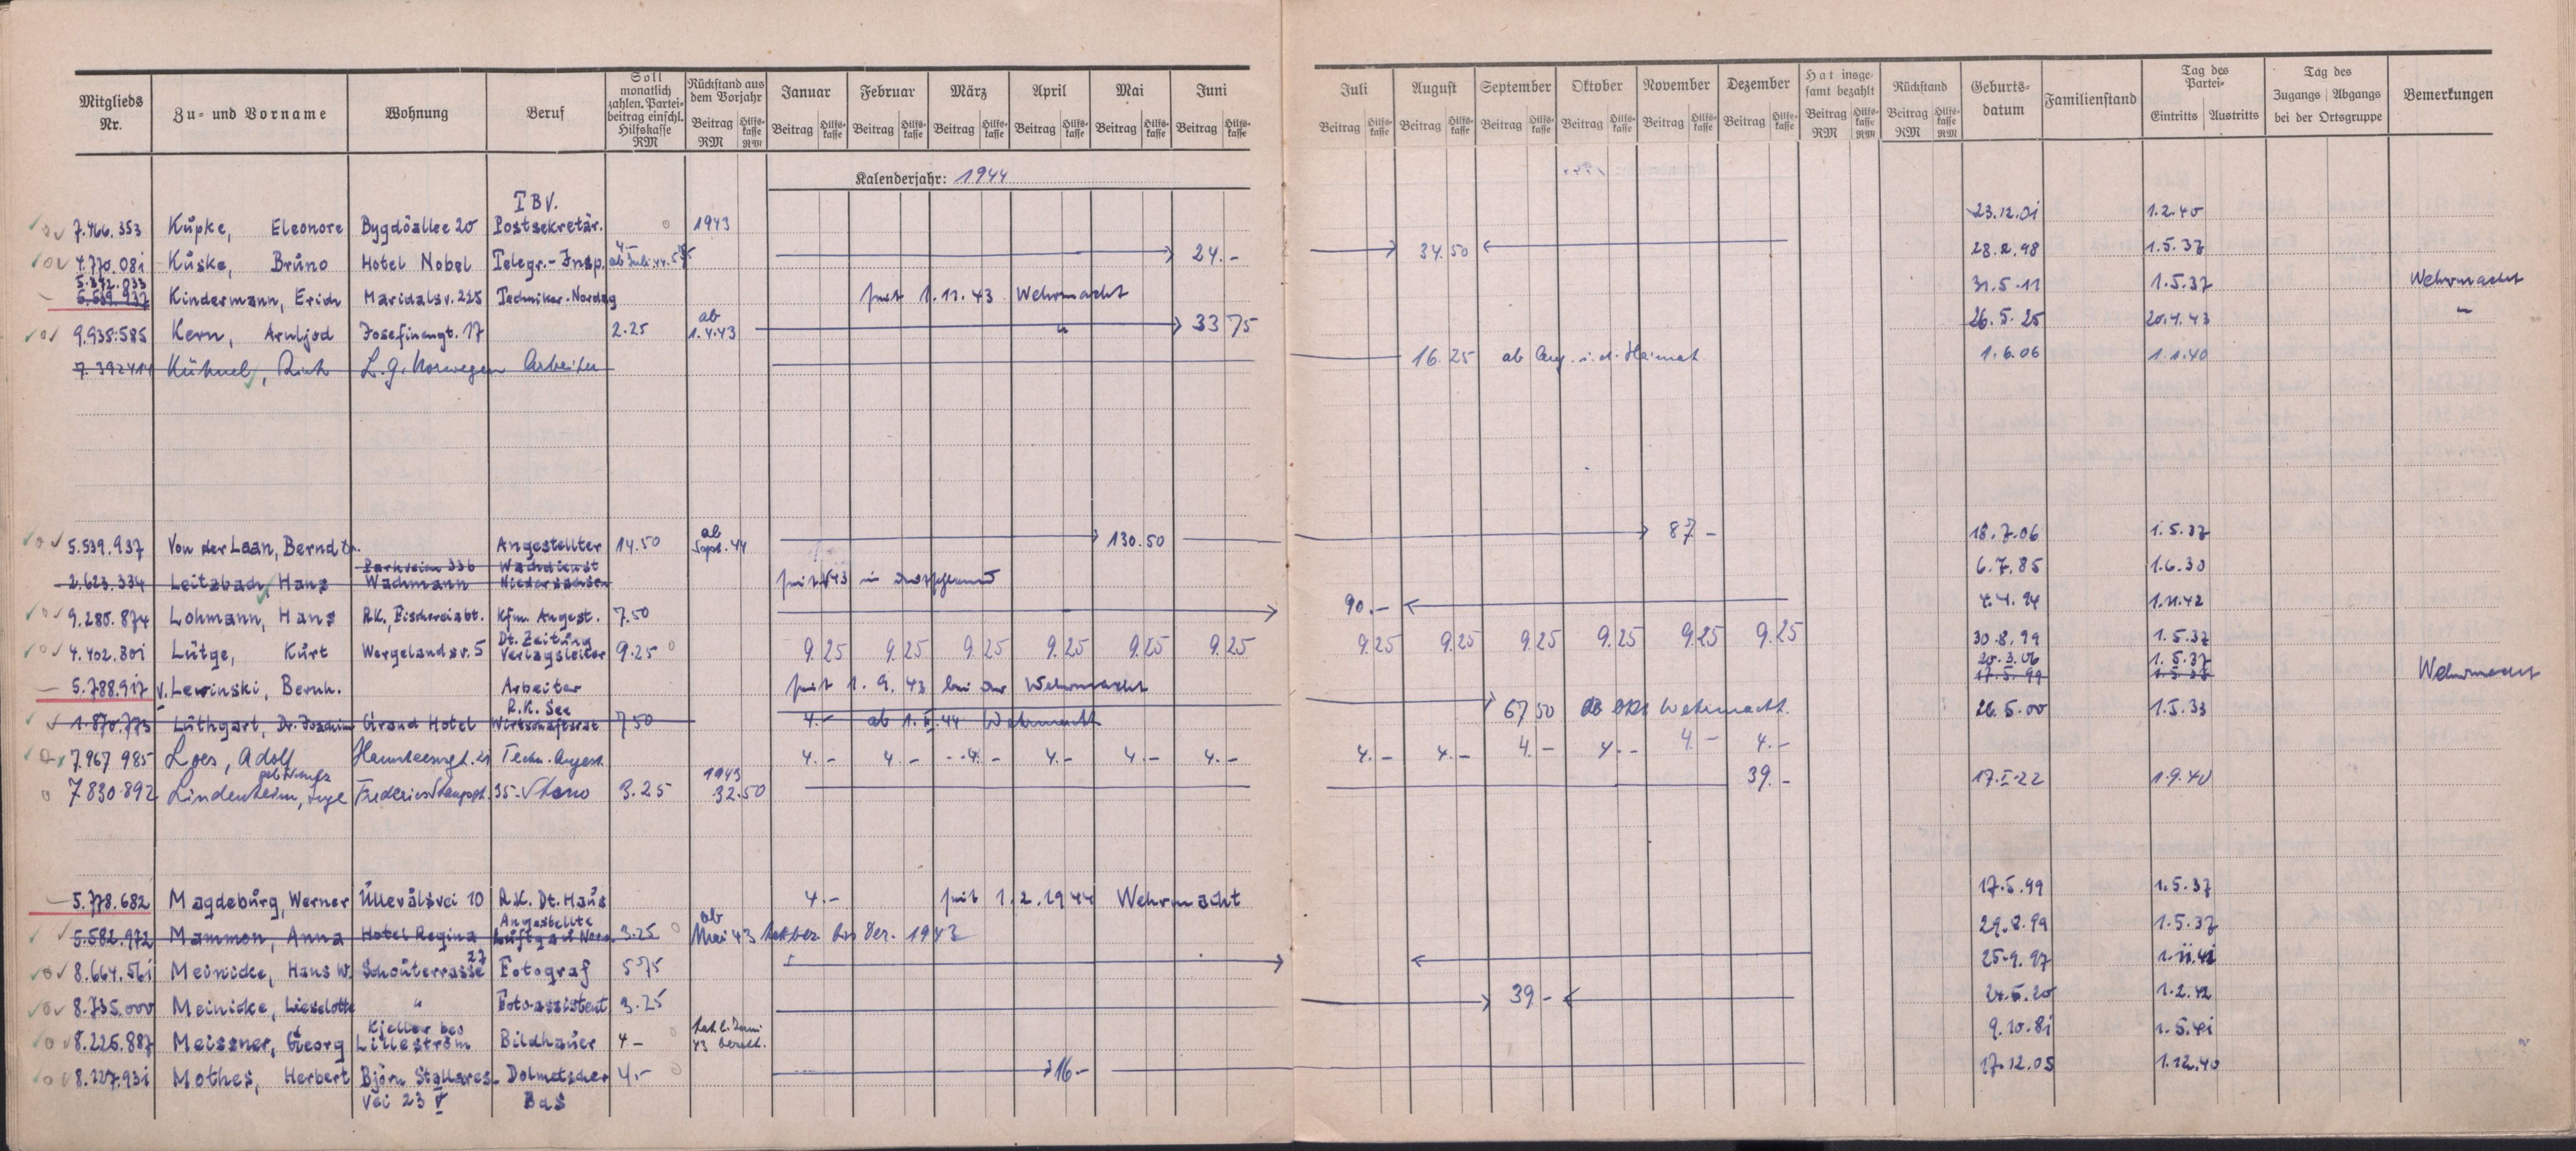 Mitglieds Nr. Zu- und Vorname Wohnung Beruf Soll monatlich zahlen. Partei-beitrag einschl. Hilfskasse RM Rückstand aus dem Vorjahr Beitrag RM Hilfs-kasse RM Januar Beitrag Hilfs-kasse Februar Beitrag Hilfs-kasse März Beitrag Hilfs-kasse April Beitrag Hilfs-kasse Mai Beitrag Hilfs-kasse Juni Beitrag Hilfs-kasse Juli Beitrag Hilfs-kasse August Beitrag Hilfs-kasse September Beitrag Hilfs-kasse Oktober Beitrag Hilfs-kasse November Beitrag Hilfs-kasse Dezember Beitrag Hilfs-kasse Hat insge-samt bezahlt Beitrag RM Hilfs-kasse RM Rückstand Beitrag RM Hilfs-kasse RM Geburts-datum Familienstand Tag des Partei- Eintritts Austritts Tag des Zugangs Abgangs bei der Ortsgruppe Bemerkungen
Kalenderjahr: 1944
T B V.
7.466.353 Kupke, Eleonore Bygdöallee 20 Postsekretär. 1943 23.12.01 1.2.40
4.770.081 Kuske, Bruno Hotel Nobel Telegr.-Insp. 4.- ab Juli 44. 24.- 34.50 28.2.98 1.5.37
5.392.033
5.539.937 Kindermann, Erich Maridalsv. 225 Techniker. Nordag seit 1.11.43 Wehrmacht 31.5.11 1.5.37 Wehrmacht
9.935.585 Kern, Arnljod Josefinengt. 17 2.25 ab 1.4.43 33 75 26.5.25 20.4.43
7.392414 Kühnel, L.g. Norwegen Arbeiter 16.25 ab Aug. i. d. Heimat 1.6.06 1.1.40
5.539.937 Von der Laan, Bernd Angestellter 14.50 ab Sept. 44 130.50 87 - 18.7.06 1.5.37
Parkveien 33b Wachdienst
2.623.334 Leitzbach, Hans Wachmann Niedersachsen 6.7.85 1.6.30
9.280.874 Lohmann, Hans R.K., Fischereiabt. Kfm. Angest. 7.50 90.- 4.4.94 1.11.42
Dt. Zeitung
4.402.801 Lütge, Kurt Wergelandsv. 5 Verlagsleiter 9.25 9.25 9.25 9.25 9.25 9.25 9.25 9.25 9.25 9.25 9.25 9.25 9.25 30.8.99 1.5.37
20.3.06 1.5.37
5.788.917 v. Lewinski, Bernh. Arbeiter seit 1.9.43 bei der Wehrmacht 17.5.99 Wehrmacht
R.K. See
1.870.773 Lüthgart, Dr. Joachim Grand Hotel Wirtschaftsrat 7 50 4.- ab 1.II.44 Wehrmacht 67 50 Wehrmacht. 26.5.00 1.5.33
7.967 985 Loes, Adolf Techn. Angest. 4.- 4.- 4.- 4.- 4.- 4.- 4.- 4.- 4.- 4.- 4.- 4.-
7.830.892 Lindenheim, Inge 35 Steno 3.25 1943 32.50 39.- 17.I.22 1.9.40
5.778.682 Magdeburg, Werner Ullevålsvei 10 R.K. Dt. Haus 4.- seit 1.2.1944 Wehrmacht 17.5.99 1.5.37
Angestellte
5.582.972 Mammon, Anna Hotel Regina Luftgau Norw. 3.25 ab Mai 43 hat bez. bis Dez. 1943 29.8.99 1.5.37
8.664.561 Meinicke, Hans W. Schouterrasse 27 Fotograf 5 75 25.9.97 1.11.41
8.735.000 Meinicke, Lieselotte " Fotoassistent 3.25 39- 24.5.20 1.2.42
Kjeller beo
8.226.887 Meissner, Georg Lilleström Bildhauer 4 - 9.10.81 1.5.41
8.227.931 Mothes, Herbert Björn Stallares- Dolmetscher 4.- 16- 17.12.05 1.12.40
vei 23 V BdS